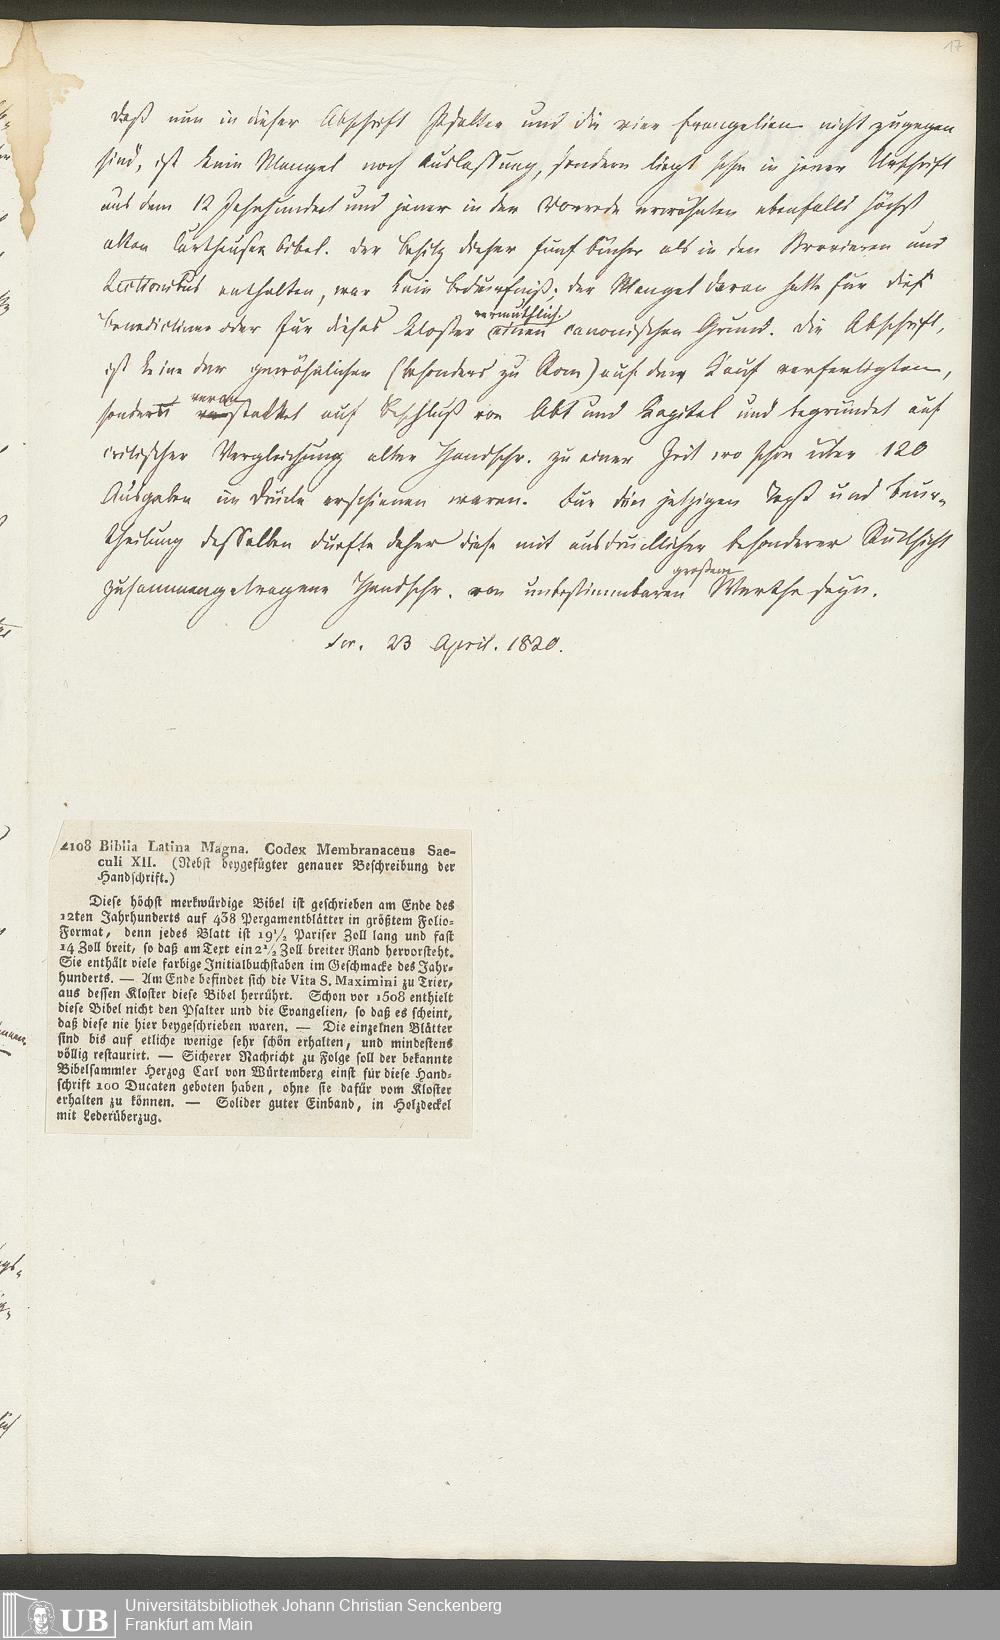 17
Daß nun in dieser Abschrift Psalter und die vier Evangelien nicht zugegen
sind, ist kein Mangel noch Auslassung, sondern liegt schon in jener Urschrift
aus dem 12 Jahrhundert und jener in der Vorrede erwähnten ebenfalls höchst
alten Carthäuser bibel. Der Besitz dieser fünf bücher als in den Breviaren und
Lectionibus enthalten, war kein bedürfniß; der Mangel davon hatte für dies
benedictiner oder für dieses Kloster vermuthlich einen canonischen Grund. Die Abschrift,
ist keine der gewöhnlichen (besonders zu Rom) auf den Kauf verfertigten,
sondern veranstaltet auf Beschluß von Abt und Kapitel und begründet auf
critischer Vergleichung alter Handschr. zu einer Zeit wo schon über 120
Ausgaben im Drucke erschienen waren. Für den jetzigen Text und beur-
theilung desselben dürfte daher diese mit ausdrücklicher besonderer Rücksicht
zusammengetragene Handschr. von unbestimmbaren großem Werthe seyn.
23 April. 1820.
2108 Biblia Latina Magna. Codex Membranaceus Sae-
culi XII. (Nebst beygefügter genauer Beschreibung der
Handschrift.)
Diese höchst merkwürdige Bibel ist geschrieben am Ende des
12ten Jahrhunderts auf 438 Pergamentblätter in größtem Folio-
Format, denn jedes Blatt ist 19 1/2 Pariser Zoll lang und fast
14 Zoll breit, so daß am Text ein 2 1/2 Zoll breiter Rand hervorsteht.
Sie enthält viele farbige Initialbuchstaben im Geschmacke des Jahr-
hunderts. — Am Ende befindet sich die Vita S. Maximini zu Trier,
aus dessen Kloster diese Bibel herrührt. Schon vor 1508 enthielt
diese Bibel nicht den Psalter und die Evangelien, so daß es scheint,
daß diese nie hier beygeschrieben waren. — Die einzelnen Blätter
sind bis auf etliche wenige sehr schön erhalten, und mindestens
völlig restaurirt. — Sicherer Nachricht zu Folge soll der bekannte
Bibelsammler Herzog Carl von Würtemberg einst für diese Hand-
schrift 100 Ducaten geboten haben, ohne sie dafür vom Kloster
erhalten zu können. — Solider guter Einband, in Holzdeckel
mit Lederüberzug.
UB
Universitätsbibliothek Johann Christian Senckenberg
Frankfurt am Main